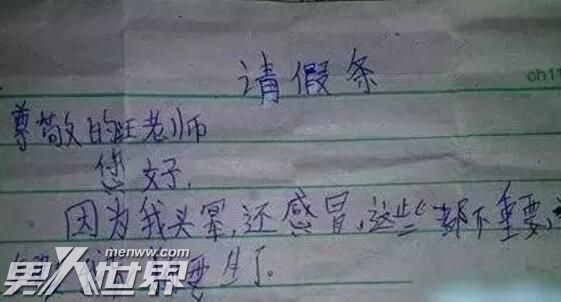 请假条
ch11
尊敬的旺老师
您好,
因为我头晕,还感冒,这些都不重要,
要生了。
menww.com
男人世界